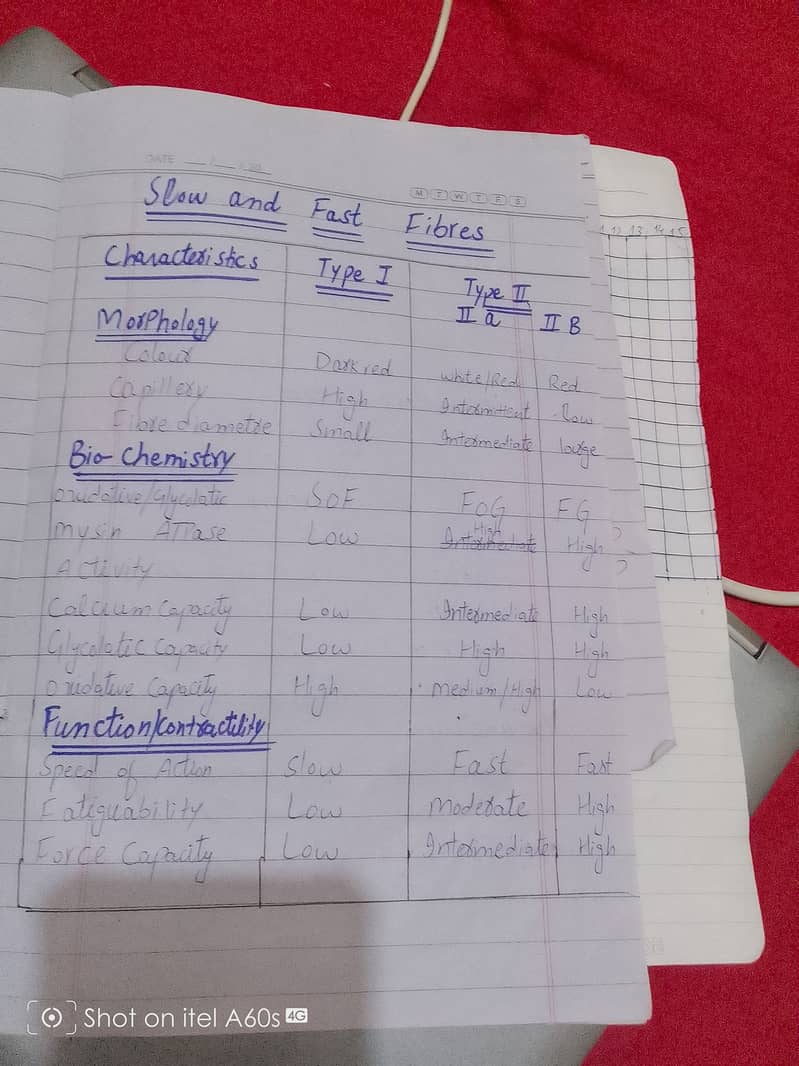 DATE
M T W T F S
Slow and Fast Fibres
Characteristics Type I Type II
II a II B
Morphology
Colour Dark red white/Red Red
Capillery High Intermittent Low
Fibre diametre Small Intermediate large
Bio-Chemistry
SOF FOG FG
High
Mysin ATPase Low Intermediate High
Activity
Calcium Capacity Low Intermediate High
Glycolatic Capacity Low High High
Oxidative Capacity High Medium/High Low
Function/Contractility
Speed of Action Slow Fast Fast
Fatiguability Low Moderate High
Force Capacity Low Intermediate High
12 13 14 15
Shot on itel A60s 4G